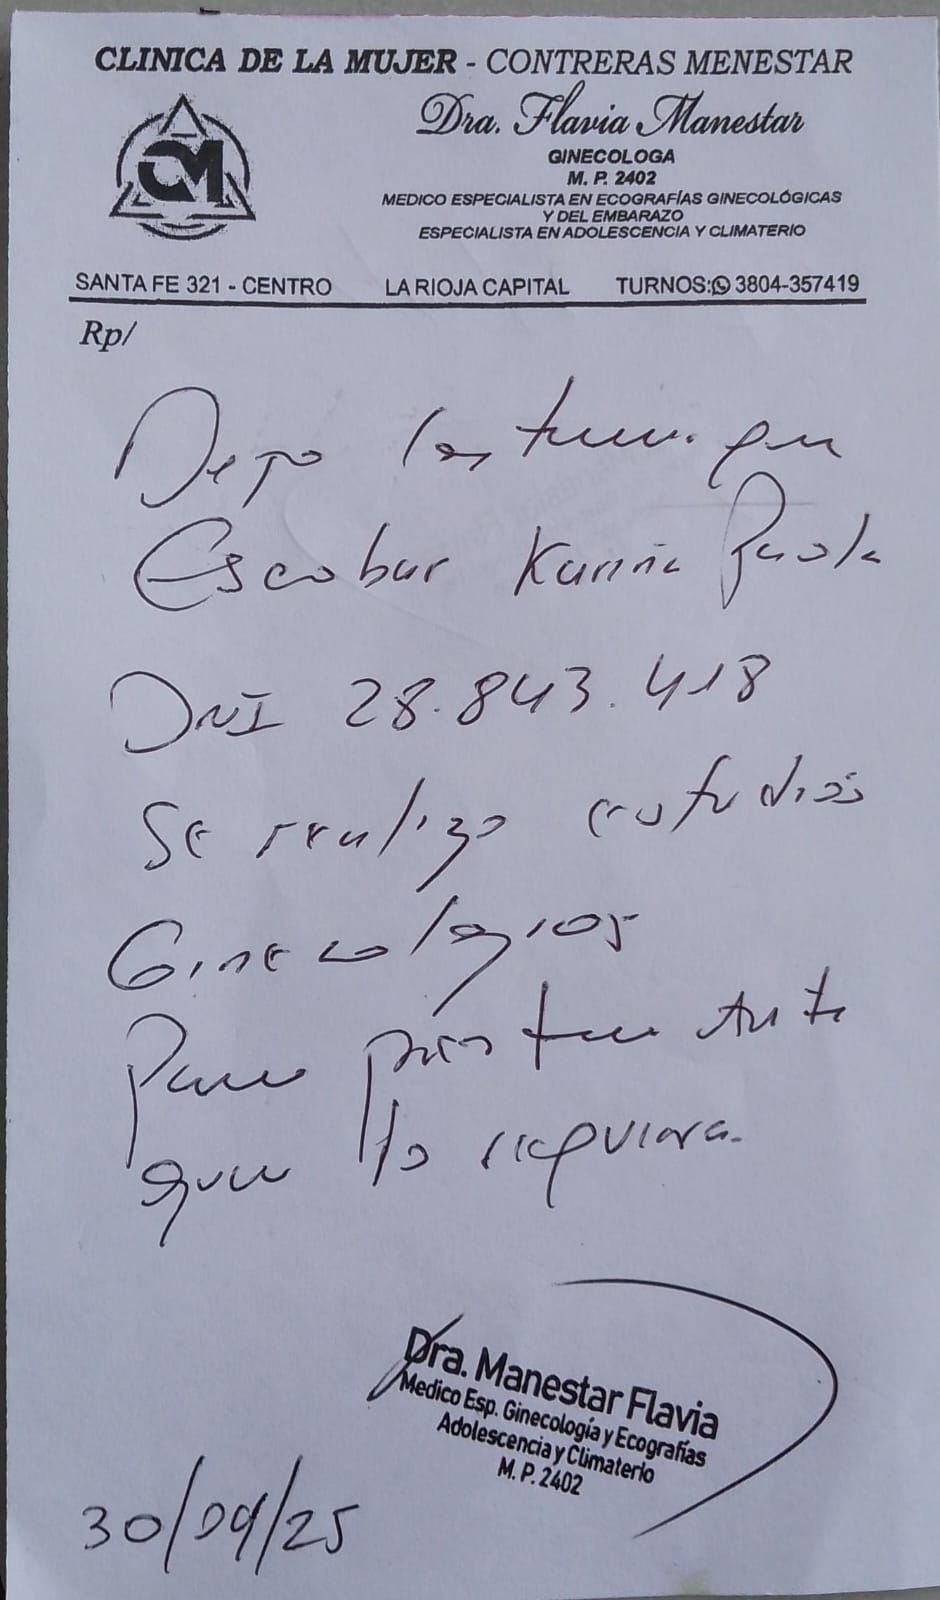 CLINICA DE LA MUJER - CONTRERAS MENESTAR
CM
Dra. Flavia Manestar
GINECOLOGA
M. P. 2402
MEDICO ESPECIALISTA EN ECOGRAFÍAS GINECOLÓGICAS
Y DEL EMBARAZO
ESPECIALISTA EN ADOLESCENCIA Y CLIMATERIO
SANTA FE 321 - CENTRO LA RIOJA CAPITAL TURNOS: 3804-357419
Rp/
Dejo constancia que
Escobar Karina Paola
DNI 28.843.418
Se realizo estudios
Ginecologicos
Para presentar ante
quien lo requiera.
Dra. Manestar Flavia
Medico Esp. Ginecología y Ecografías
Adolescencia y Climaterio
M. P. 2402
30/09/25